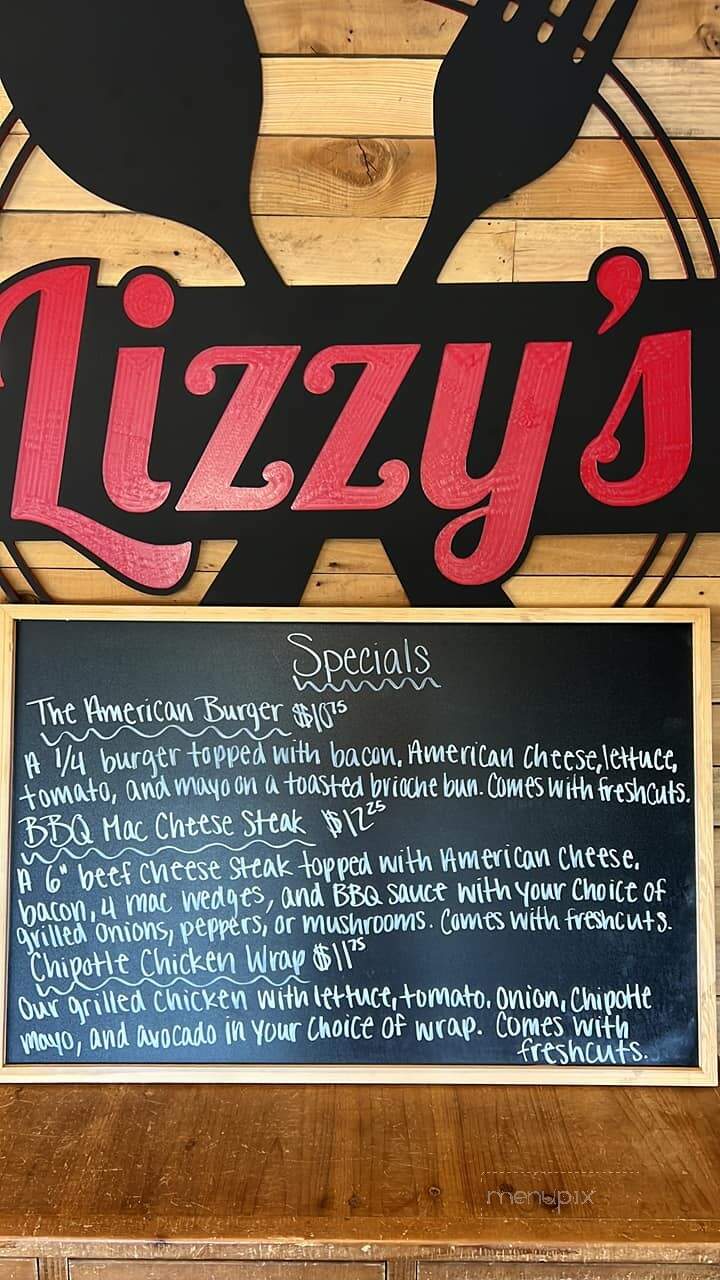 Lizzy's
Specials
The American Burger $10.75
A 1/4 burger topped with bacon, American cheese, lettuce,
tomato, and mayo on a toasted brioche bun. Comes with freshcuts.
BBQ Mac Cheese Steak $12.25
A 6" beef cheese steak topped with American cheese,
bacon, 4 mac wedges, and BBQ sauce with your choice of
grilled onions, peppers, or mushrooms. Comes with freshcuts.
Chipotle Chicken Wrap $11.75
Our grilled chicken with lettuce, tomato, onion, chipotle
mayo, and avocado in your choice of wrap. Comes with
freshcuts.
menupix